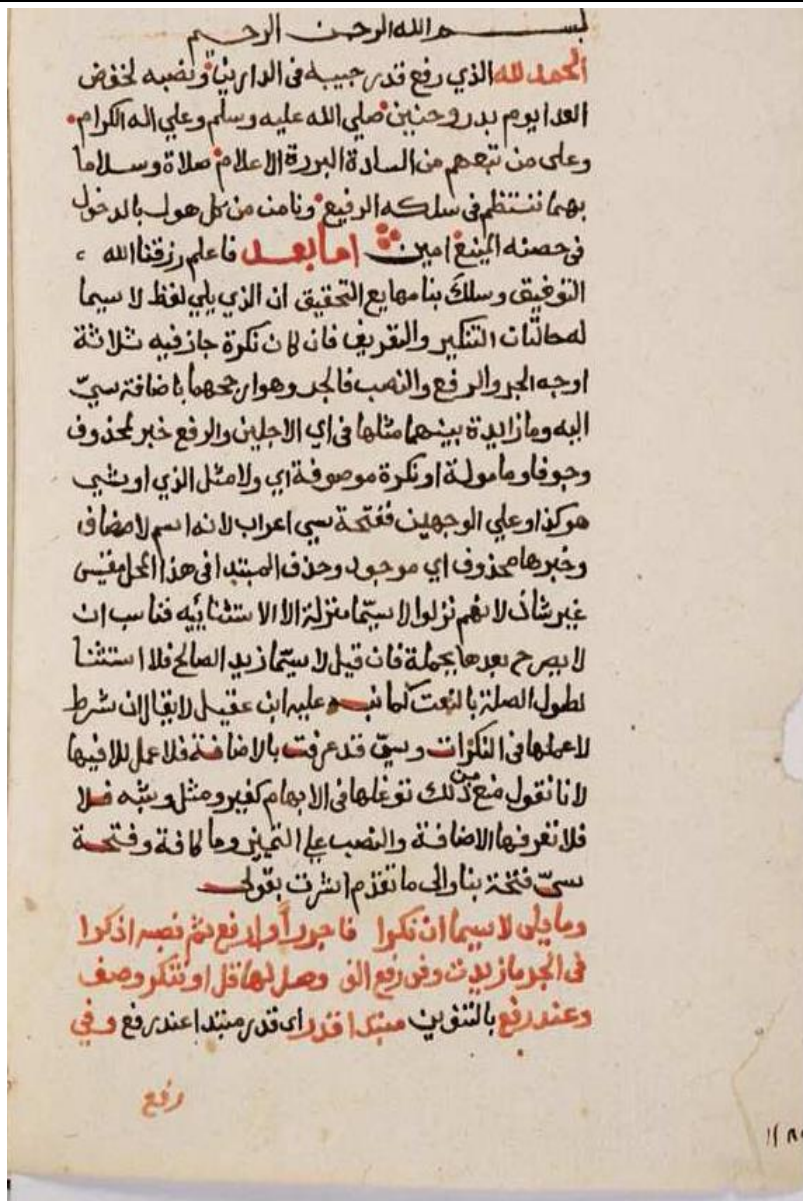 بسم الله الرحمن الرحيم
الحمد لله الذي رفع قدر حبيبه في الدارين ونصبه لخفض
العدا يوم بدر وحنين صلي الله عليه وسلم وعلي اله الكرام
وعلى من تبعهم من السادة البررة الاعلام صلاة وسلاما
بهما ننتظم في سلكه الرفيع ونامن من كل هول بالدخول
في حصنه المنيع امين اما بعد فاعلم رزقنا الله
التوفيق وسلك بنا مهايع التحقيق ان الذي يلي لفظ لا سيما
له حالتان التنكير والتعريف فان كان نكرة جاز فيه ثلاثة
اوجه الجر والرفع والنصب فالجر وهو ارجحها باضافة سيّ
اليه وما زايدة بينهما مثلها في اي الاجلين والرفع خبر لمحذوف
وجوفا وما موصولة او نكرة موصوفة اي ولا مثل الذي او شي
هو كذا وعلي الوجهين ففتحة سي اعراب لانه اسم لا مضاف
وخبرها محذوف اي موجود وحذف المبتدا في هذا المحل مقيس
غير شاذ لانهم نزلوا لا سيّما منزلة الا الاستثنائيه فناسب ان
لا يصرح بعدها بجملة فان قيل لا سيّما زيد الصالح فلا استثنا
لطول الصلة بالنعت كما نبه عليه ابن عقيل لا يقال ان شرط
لا عملها في النكرات وسيّ قد عرفت بالاضافة فلا عمل للا فيها
لانا نقول منع من ذلك توغلها في الابهام كغير ومثل وشبه فلا
فلا تعرفها الاضافة والنصب علي التمييز وما كافة وفتحة
سيّ فتحة بنا والى ما تقدم اشرت بقولى
وما يلى لا سيما ان نكرا فاجرر أو ارفع ثم نصبه اذكرا
في الجر ما زيدت وفي رفع الف وصل لها قل او تنكر وصف
وعند رفع بالتنوين مبتدا قدر اى قدر مبتدا عند رفع وفي
رفع